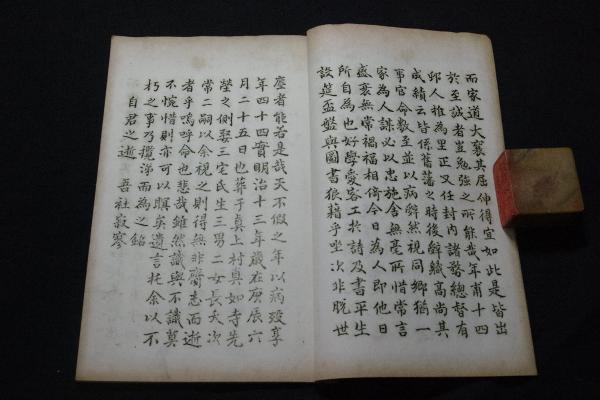 而家道大襄其屈伸得宜如此是皆出
於至誠者豈勉強之所能哉年甫十四
邱人推為里正又任封內諸務總督有
成績云皆係舊藩之時後辭職高尚其
事官命數至並以病辭然視同鄉猶一
家為人謀必以忠施舍無毫所惜常言
盛衰無常禍福相倚今日為人即他日
所自為也好學愛客工於詩及書平生
設筵盃盤與圖書狼藉乎坐次非脫世
塵者能若是哉天不假之年以病歿享
年四十四實明治十三年歲在庚辰六
月二十五日也葬于真上村真如寺先
塋之側娶三宅氏生三男二女長夭次
常二嗣以余視之則得無非齎志而逝
者乎嗚呼命也悲哉雖然識與不識莫
不惋惜則亦可以瞑矣遺言托余以不
朽之事乃攬涕而為之銘
自君之逝 吾社寂寥